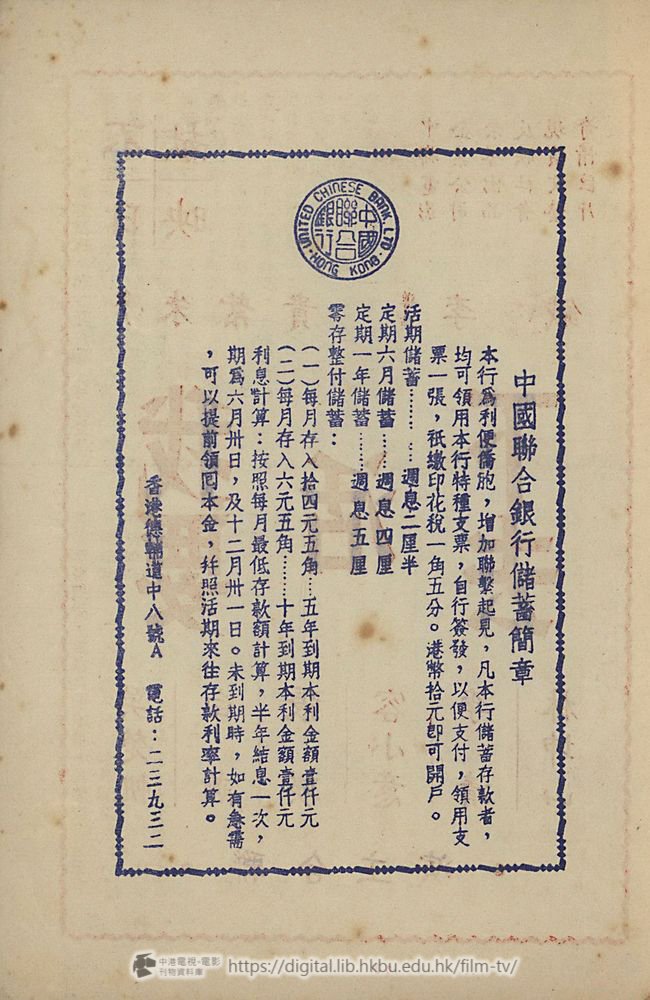 UNITED CHINESE BANK, LTD.
HONG KONG
中國聯合銀行
中國聯合銀行儲蓄簡章
本行爲利便僑胞，增加聯繫起見，凡本行儲蓄存款者，
均可領用本行特種支票，自行簽發，以便支付，領用支
票一張，祇繳印花稅一角五分。港幣拾元卽可開戶。
活期儲蓄………週息二厘半
定期六月儲蓄……週息四厘
定期一年儲蓄……週息五厘
零存整付儲蓄：
(一)每月存入拾四元五角…五年到期本利金額壹仟元
(二)每月存入六元五角……十年到期本利金額壹仟元
利息計算：按照每月最低存款額計算，半年結息一次，
期爲六月卅日，及十二月卅一日。未到期時，如有急需
，可以提前領回本金，幷照活期來往存款利率計算。
香港德輔道中八號A 電話：二三九三二
中港電視、電影
刊物資料庫
https://digital.lib.hkbu.edu.hk/film-tv/